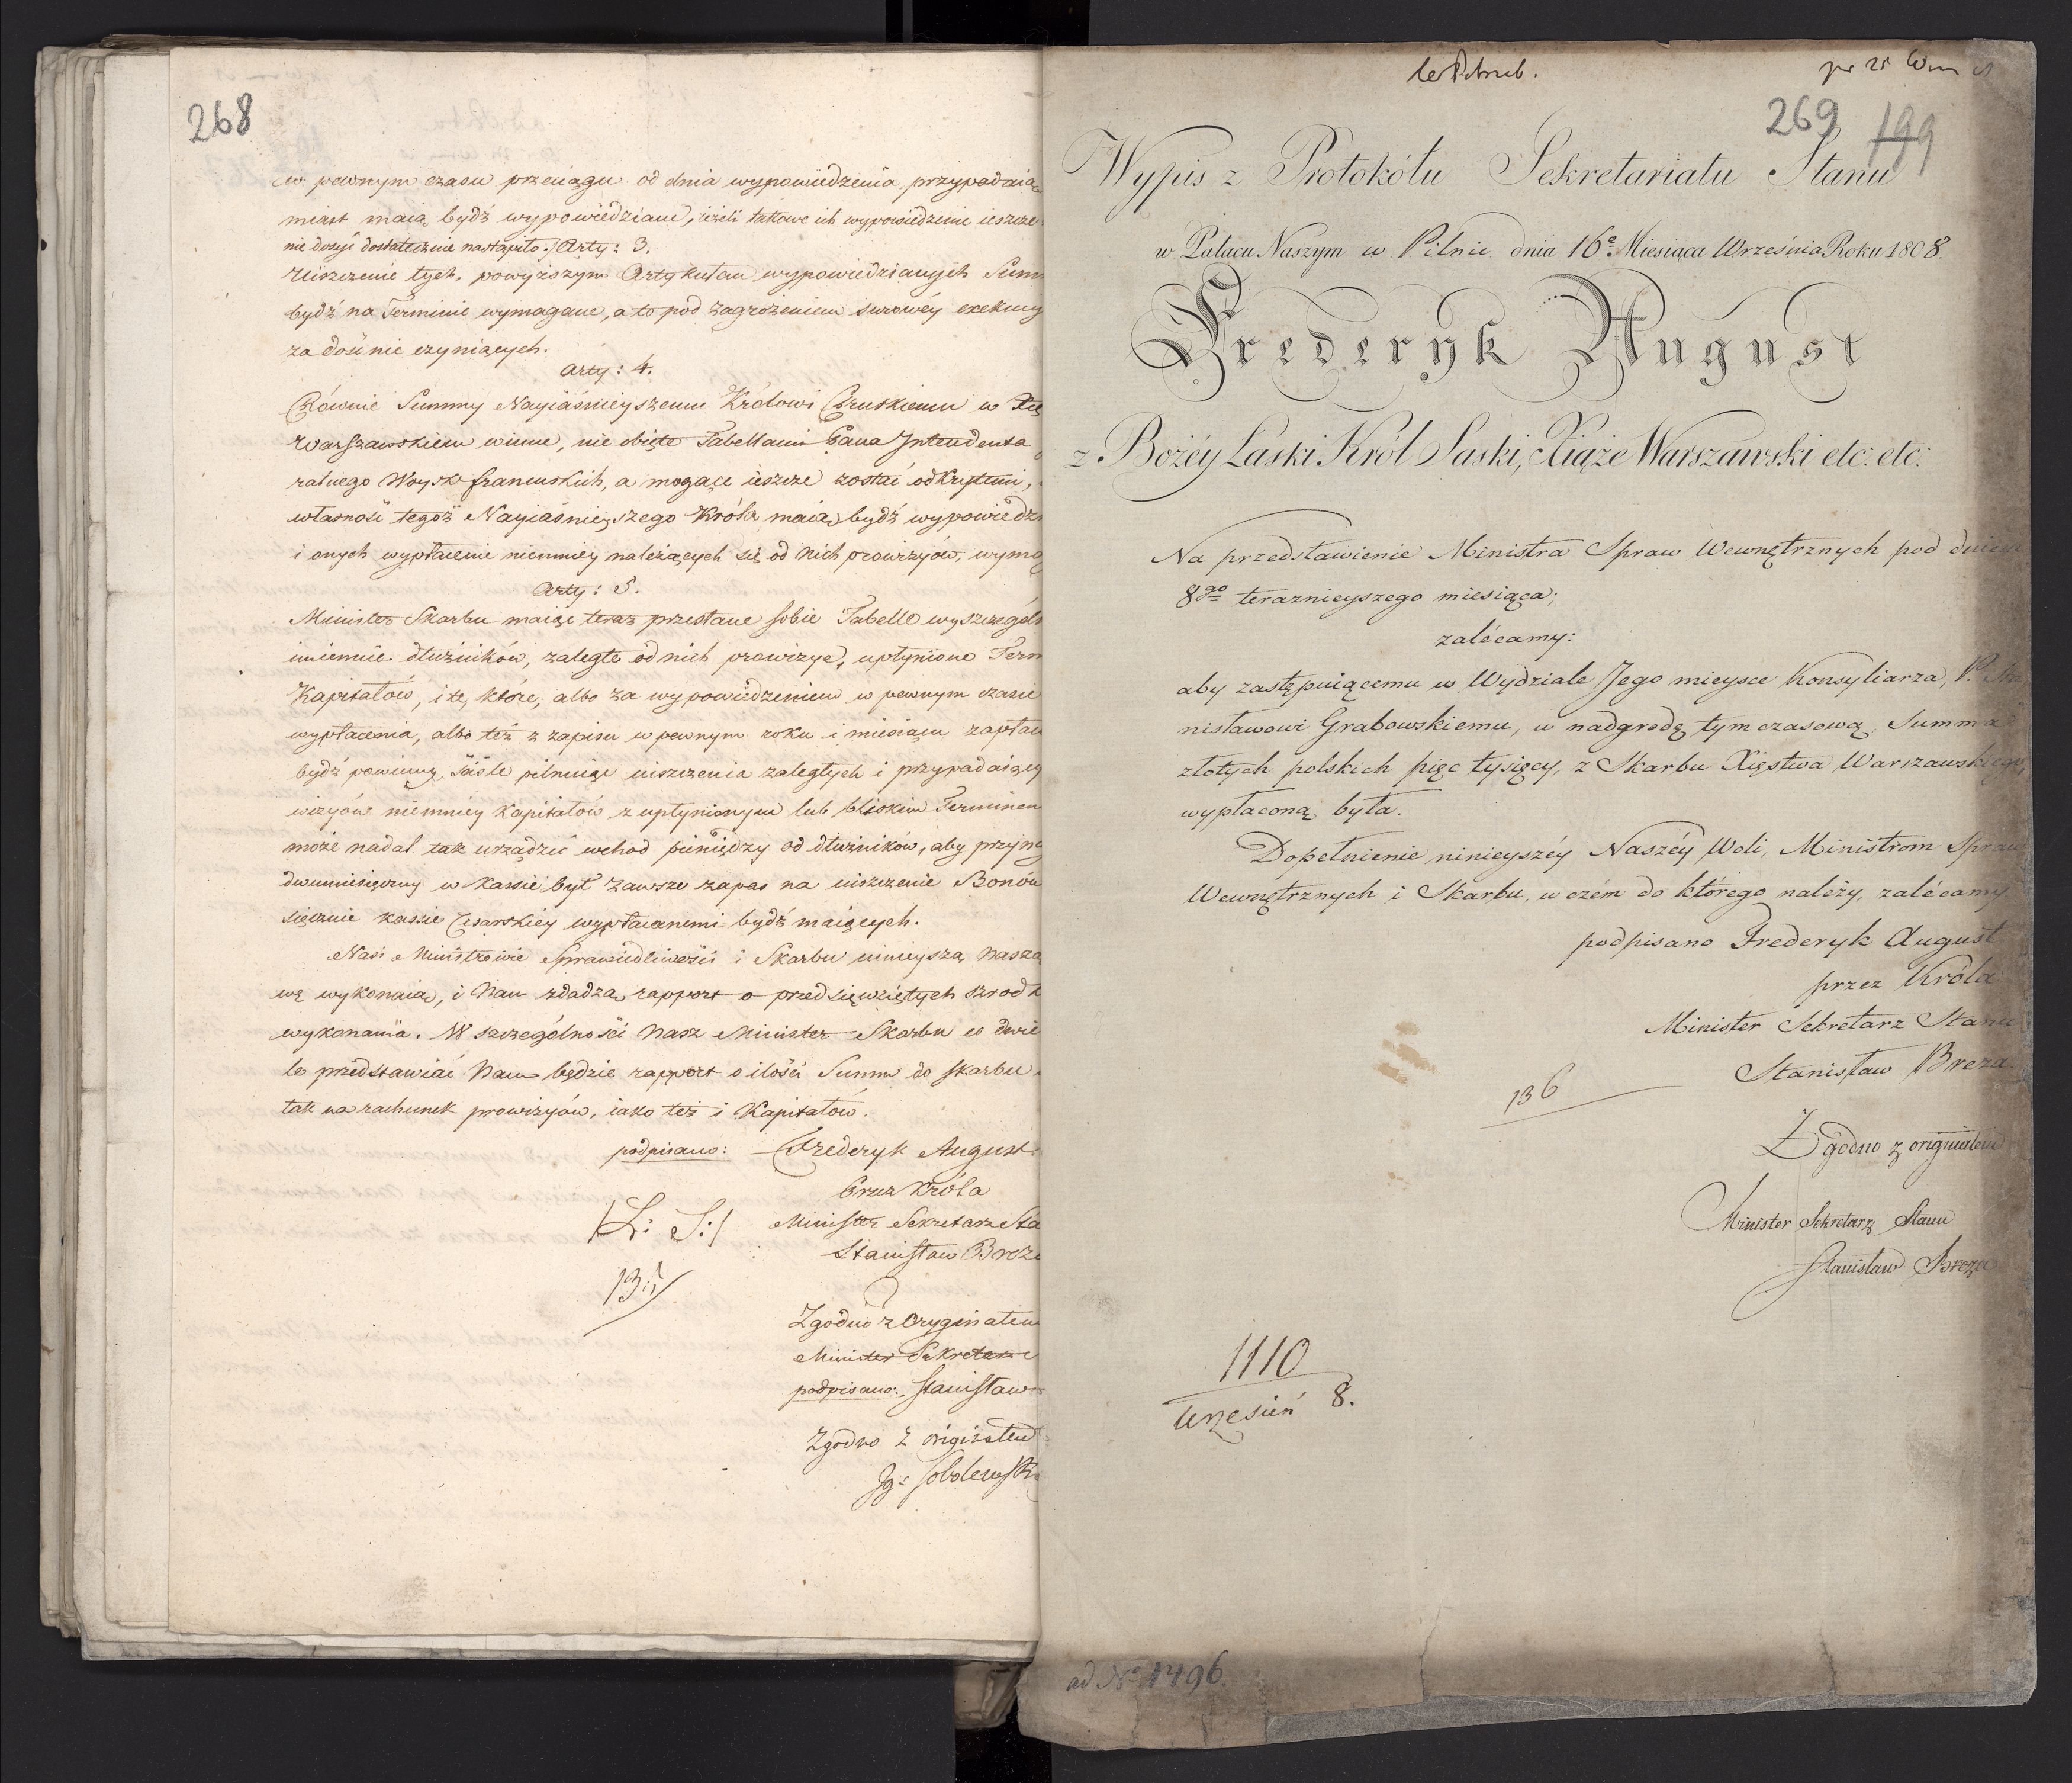 268
w pewnym czasu przeciągu od dnia wypowiedzenia przypadaią
miast maią bydź wypowiedziane, ieżeli takowe ich wypowiedzenie ieszcze
nie dosyć dostatecznie nastąpiło. Arty: 3.
Uiszczenie tych, powyższym Artykułem wypowiedzianych Summ
bydź na Terminie wymagane, a to pod zagrożeniem surowéy exekuc
za dość nie czyniących.
Arty: 4.
Równie Summy Nayiaśnieyszemu Królowi Pruskiemu w
Warszawskiem winne, nie obięte Tabellami Pana Intendenta
ralnego Woysk francuskich, a mogące ieszcze zostać odkrytemi,
własność tegoż Nayiaśnieyszego Króla maią bydź wypowiedz
i onych wypłacenie niemniey należących się od nich prowizyów, wymag
Arty: 5.
Minister Skarbu maiąc teraz przesłane sobie Tabelle wyszczegól
imiennie dłużników, zaległe od nich prowizye, upłynione Term
Kapitałów, i te, które, albo za wypowiedzeniem w pewnym czasie
wypłacenia, albo też z zapisu w pewnym roku i miesiącu zapłac
bydź powinny, ściśle pilnuiąc uiszczenia zaległych i przypadaiący
wizyów niemniey Kapitałów z upłynionym lub bliskim Terminem
może nadal tak urządzić wchod pieniędzy od dłużników, aby przyna
dwumiesięczny w kassie był zawsze zapas na uiszczenie Bonów
sięcznie kassie Cesarskiey wypłacanemi bydź maiących.
Nasi Ministrowie Sprawiedliwości i Skarbu ninieyszą Naszą
wę wykonaią, i Nam zdadzą rapport o przedsięwziętych środk
wykonania. W szczególności Nasz Minister Skarbu co dwie
le przedstawiać Nam będzie rapport o ilości Summ do skarbu
tak na rachunek prowizyów, iako też i Kapitałów.
podpisano: Frederyk August
Przez Króla
/L: S:/ Minister Sekretarz Sta
Stanisław Brez
135
Zgodno z Oryginałem
Minister Sekretarz
podpisano: Stanisław
Zgodno z originałem
Ig: Sobolewski
269 199
Wypis z Protokółu Sekretariatu Stanu
w Pałacu Naszym w Pilnic dnia 16º Miesiąca Września Roku 1808.
Frederyk August
z Bożéy Łaski Król Saski, Xiąże Warszawski etc: etc:
Na przedstawienie Ministra Spraw Wewnętrznych pod dniem
8go teraznieyszego miesiąca;
zalécamy:
aby zastępuiącemu w Wydziale Jego mieysce Konsyliarza, P. Sta
nisławowi Grabowskiemu, w nadgrodę tymczasową, Summa
złotych polskich pięć tysięcy, z Skarbu Xięstwa Warszawskiego,
wypłaconą była.
Dopełnienie ninieyszéy Naszéy Woli, Ministrom Spraw
Wewnętrznych i Skarbu, w czém do którego należy, zalécamy
podpisano Frederyk August
przez Króla
Minister Sekretarz Stanu
Stanisław Breza
136
Zgodno z originałem
Minister Sekretarz Stanu
Stanisław Breza
1110
Wrzesień 8.
ad Nº 1496.